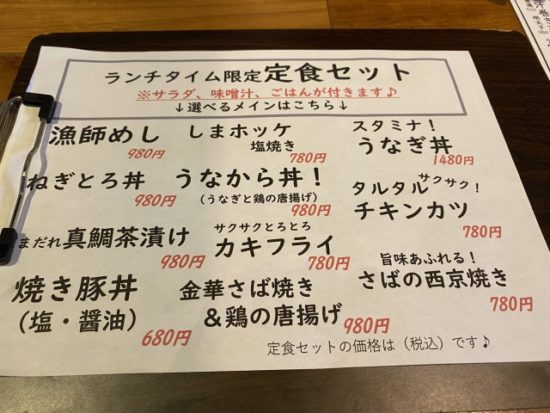 ランチタイム限定定食セット
※サラダ、味噌汁、ごはんが付きます♪
↓選べるメインはこちら↓
漁師めし
980円
しまホッケ
塩焼き
780円
スタミナ!
うなぎ丼
1480円
ねぎとろ丼
980円
うなから丼!
(うなぎと鶏の唐揚げ)
980円
タルタル サクサク!
チキンカツ
780円
まだれ真鯛茶漬け
980円
サクサクとろとろ
カキフライ
780円
旨味あふれる!
さばの西京焼き
780円
焼き豚丼
(塩・醤油)
680円
金華さば焼き
&鶏の唐揚げ
980円
定食セットの価格は(税込)です♪